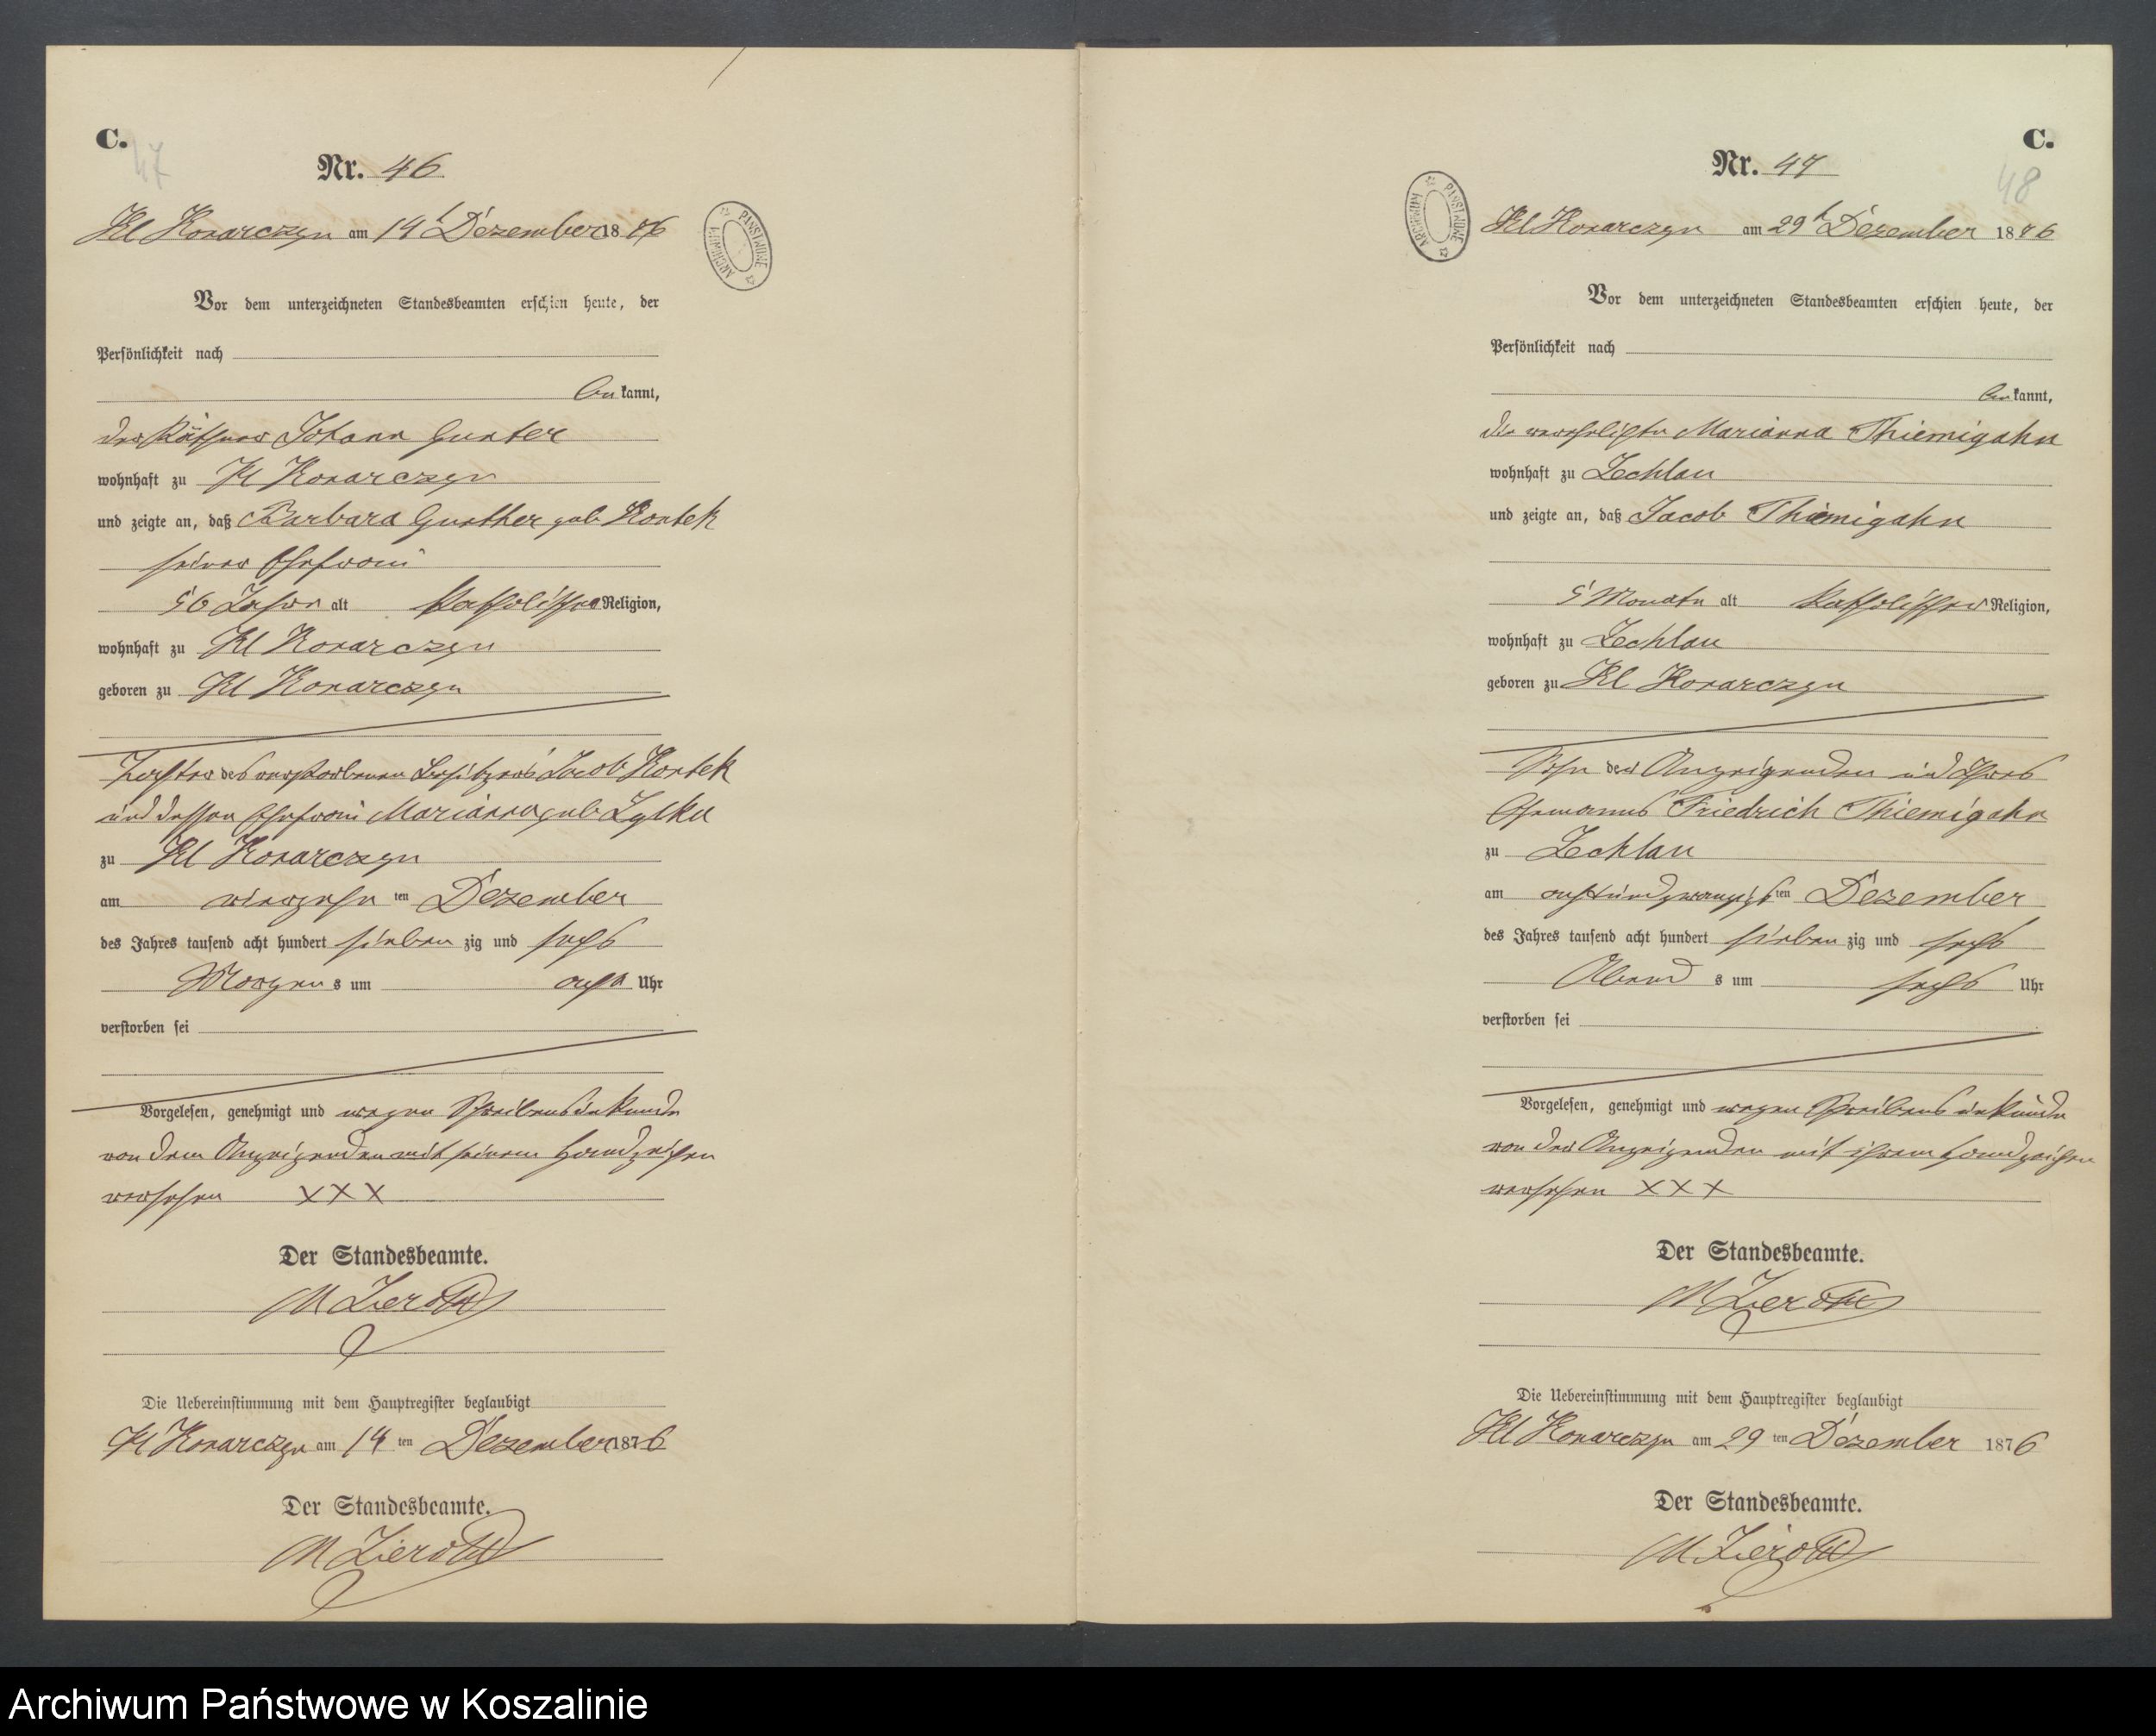 C.
47
Nr. 46
Kl Konarczyn am 14t Dezember 1876
ARCHIWUM PAŃSTWOWE
Vor dem unterzeichneten Standesbeamten erschien heute, der
Persönlichkeit nach
be kannt,
der Käthner Johann Gunter
wohnhaft zu Kl Konarczyn
und zeigte an, daß Barbara Gunther geb Kontek
seine Ehefrau
56 Jahre alt katholischer Religion,
wohnhaft zu Kl Konarczyn
geboren zu Kl Konarczyn
Tochter des verstorbenen Besitzers Jacob Kontek
und dessen Ehefrau Marianna geb Zylka
zu Kl Konarczyn
am vierzehn ten Dezember
des Jahres tausend acht hundert sieben zig und sechs
Morgen s um acht Uhr
verstorben sei
Vorgelesen, genehmigt und wegen Schreibensunkunde
von dem Anzeigenden mit seinem Handzeichen
versehen XXX
Der Standesbeamte.
M
Die Uebereinstimmung mit dem Hauptregister beglaubigt
Kl Konarczyn am 14 ten Dezember 1876
Der Standesbeamte.
M
C.
48
Nr. 47
Kl Konarczyn am 29t Dezember 1876
ARCHIWUM PAŃSTWOWE
Vor dem unterzeichneten Standesbeamten erschien heute, der
Persönlichkeit nach
be kannt,
die verehelichte Marianna Thiemigahn
wohnhaft zu Zechlau
und zeigte an, daß Jacob Thiemigahn
5 Monate alt katholischer Religion,
wohnhaft zu Zechlau
geboren zu Kl Konarczyn
Sohn der Anzeigenden und Ihres
Ehemannes Friedrich Thiemigahn
zu Zechlau
am achtundzwanzigs ten Dezember
des Jahres tausend acht hundert sieben zig und sechs
Abend s um sechs Uhr
verstorben sei
Vorgelesen, genehmigt und wegen Schreibens unkunde
von der Anzeigenden mit ihrem Handzeichen
versehen XXX
Der Standesbeamte.
M
Die Uebereinstimmung mit dem Hauptregister beglaubigt
Kl Konarczyn am 29 ten Dezember 1876
Der Standesbeamte.
M
Archiwum Państwowe w Koszalinie